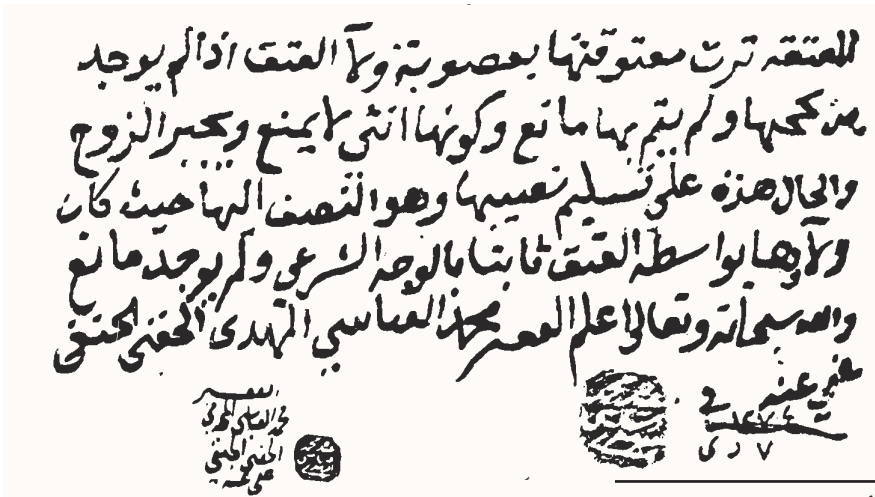 المعتقه ترث معتوقتها بعصوبة ولآ العتق اذا لم يوجد
من يحجبها ولم يقم بها مانع وكونها انثى لا يمنع ويجبر الزوج
والحال هذه على تسليم نصيبها وهو النصف اليها حيث كان
ولآوها بواسطة العتق ثابتا بالوجه الشرعى ولم يوجد مانع
والله سبحانه وتعالى اعلم الفقير محمد العباسي المهدى الحفنى الحنفى
عفي عنه في
٧
محمد العباسى المهدى
الحفنى الحنفى
عفى عنه